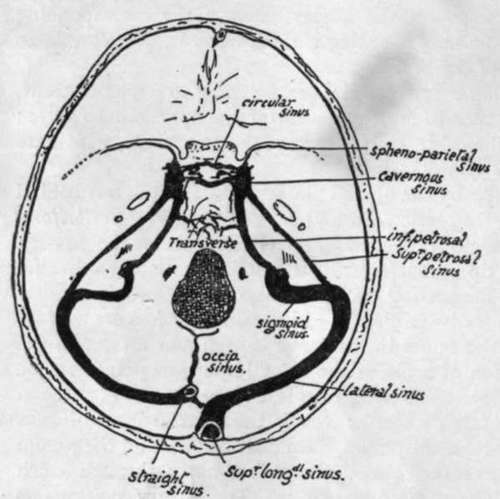 circular
sinus
spheno-parietal
sinus
cavernous
sinus
inf. petrosal
Supr. petrosal
sinus
Transverse
sigmoid
sinus.
occip.
sinus.
lateral sinus
straight
sinus.
Supr. longdl. sinus.